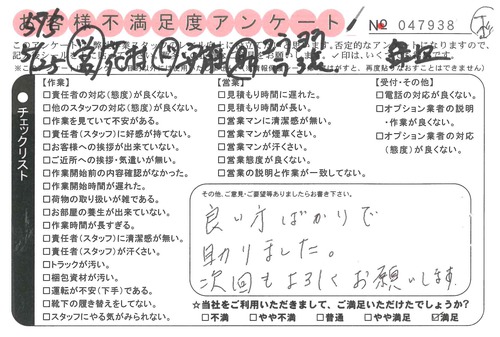 お客様不満足度アンケート
№ 047938
●チェックリスト
【作業】
□責任者の対応(態度)が良くない。
□他のスタッフの対応(態度)が良くない。
□作業を見ていて不安がある。
□責任者(スタッフ)に好感が持てない。
□お客様への挨拶が出来ていない。
□ご近所への挨拶・気遣いが無い。
□作業開始前の内容確認がなかった。
□作業開始時間が遅れた。
□荷物の取り扱いが雑である。
□お部屋の養生が出来ていない。
□作業時間が長すぎる。
□責任者(スタッフ)に清潔感が無い。
□責任者(スタッフ)が汗くさい。
□トラックが汚い。
□梱包資材が汚い。
□運転が不安(下手)である。
□靴下の履き替えをしてない。
□スタッフにやる気がみられない。
【営業】
□見積もり時間に遅れた。
□見積もり時間が長い。
□営業マンに清潔感が無い。
□営業マンが煙草くさい。
□営業マンが汗くさい。
□営業態度が良くない。
□営業の説明と作業が一致してない。
【受付・その他】
□電話の対応が良くない。
□オプション業者の説明
・作業が良くない。
□オプション業者の対応
(態度)が良くない。
その他、ご意見・ご要望等ありましたらお書き下さい。
良い方ばかりで
助りました。
次回もよろしくお願いします
☆当社をご利用いただきまして、ご満足いただけたでしょうか?
□不満 □やや不満 □普通 □やや満足 ☑満足